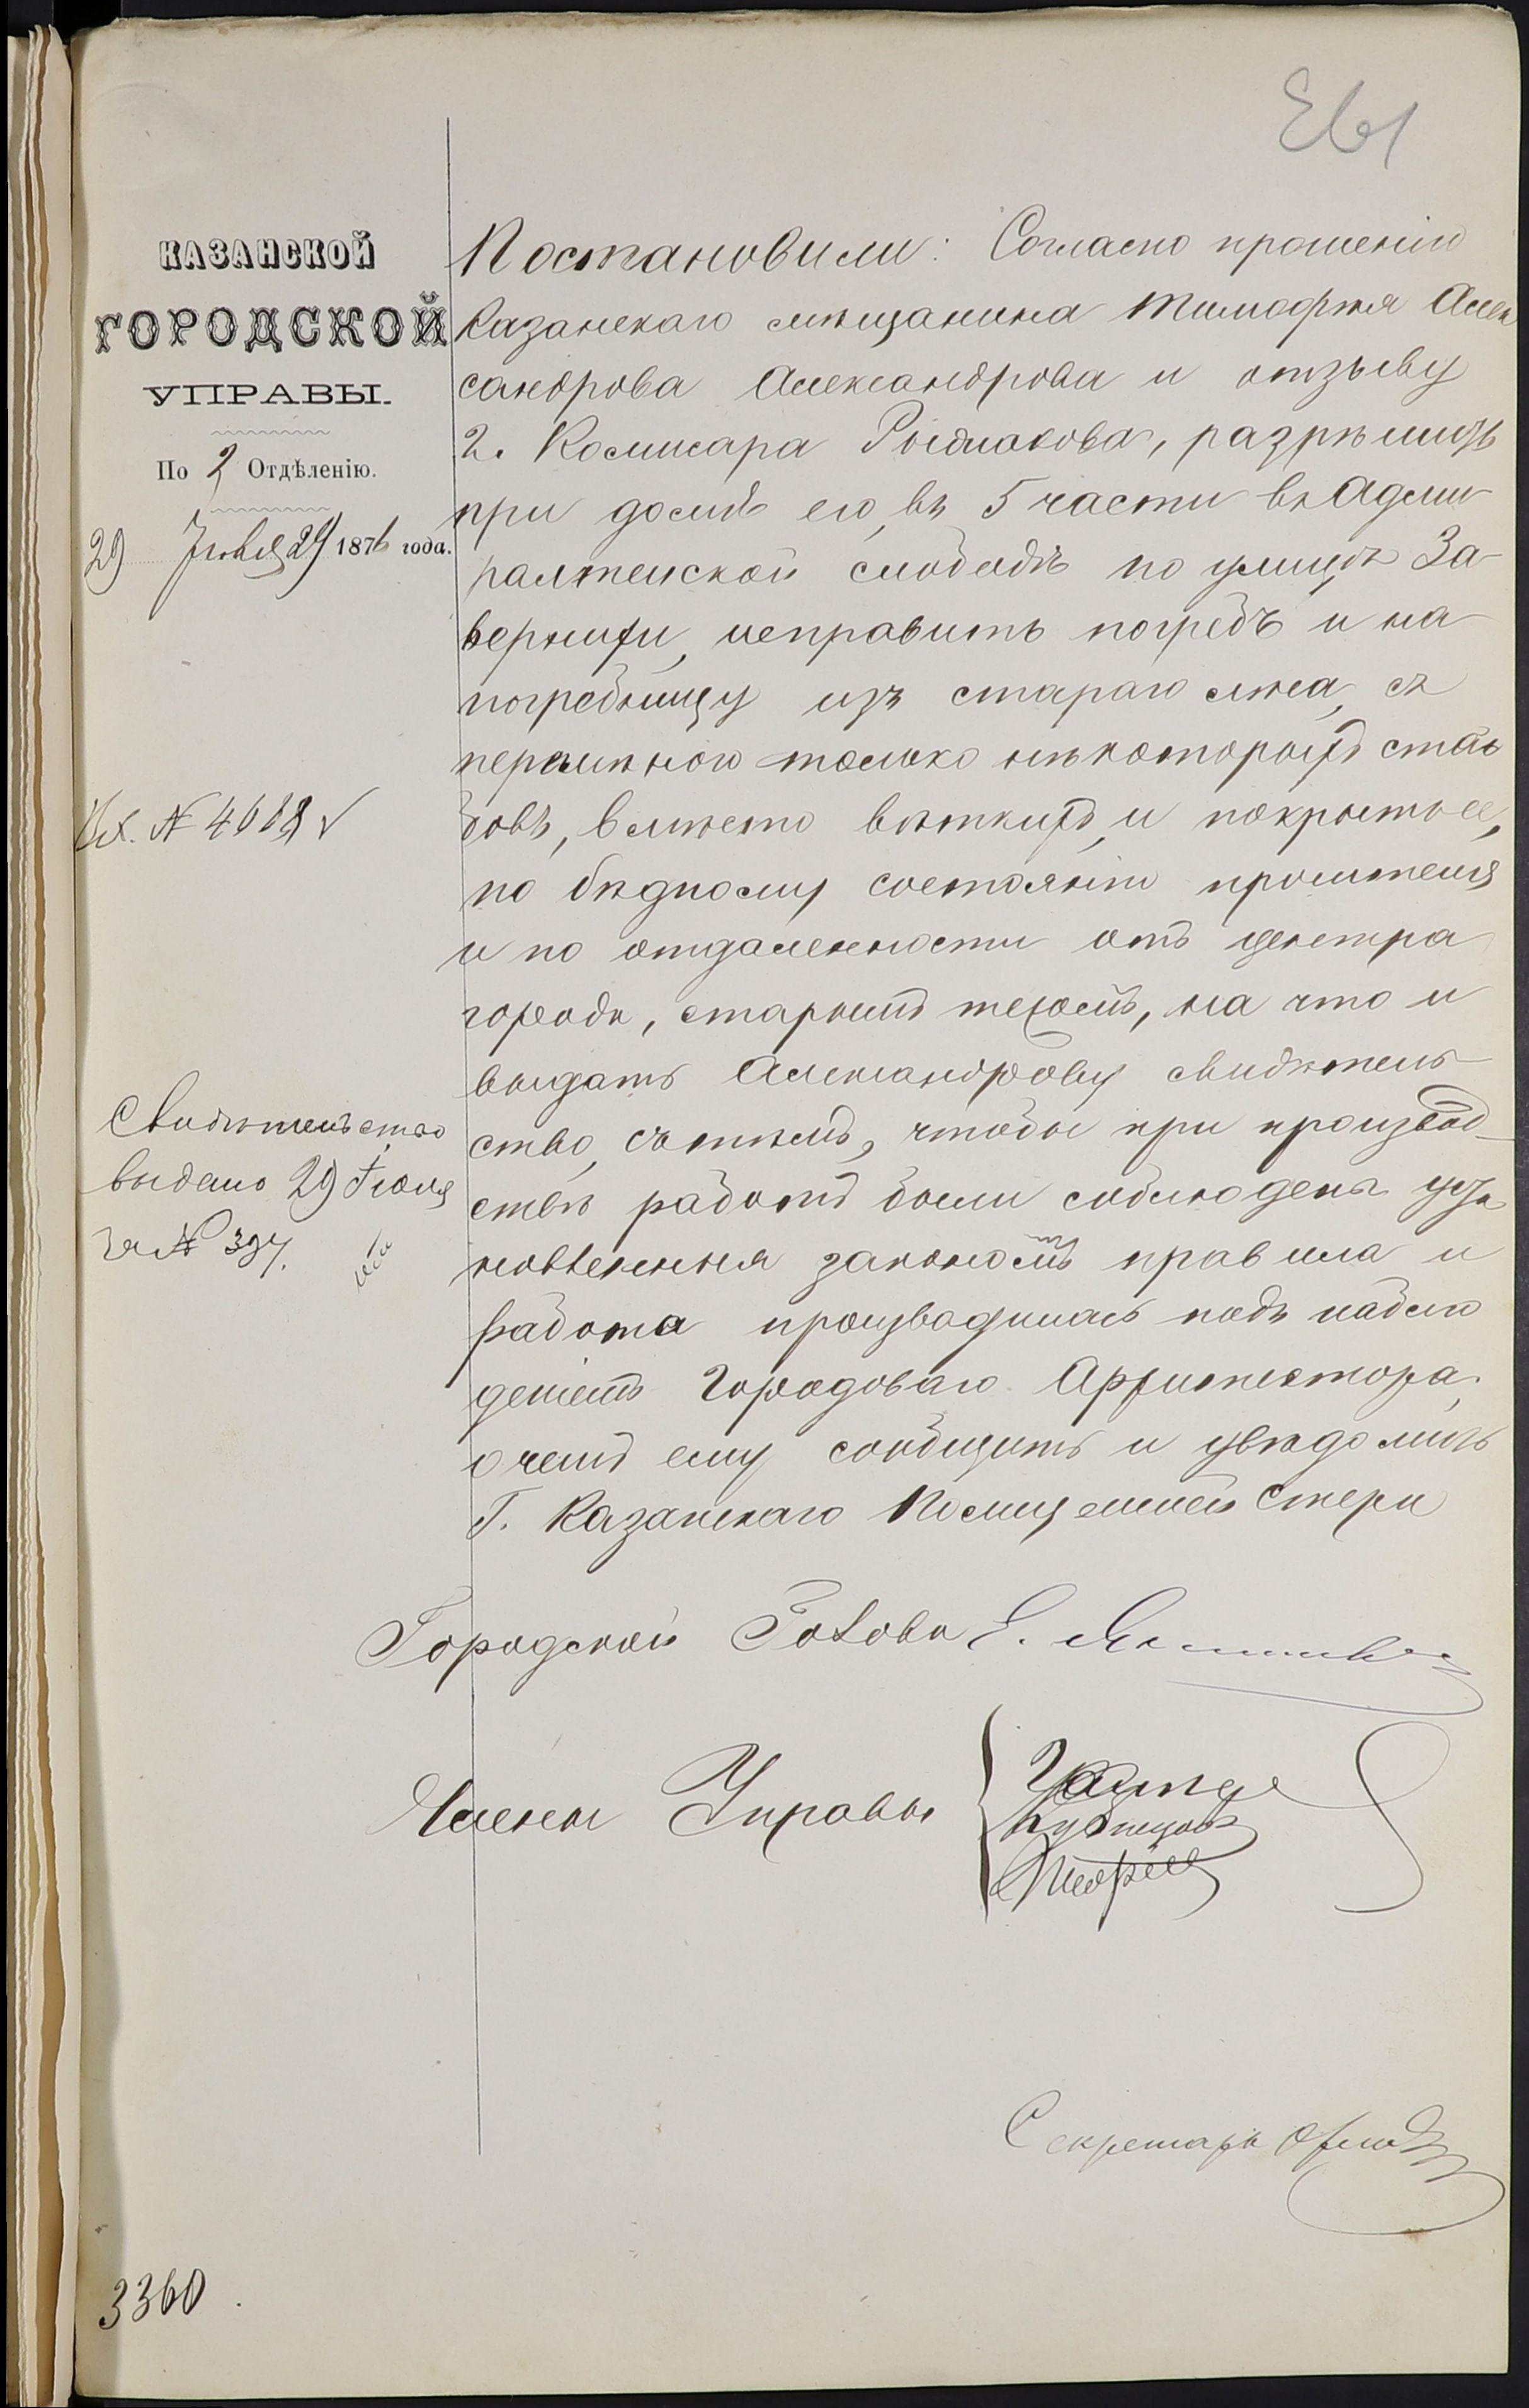 КАЗАНСКОЙ
ГОРОДСКОЙ
УПРАВЫ.
По 2 Отдѣленію.
29 Іюня 29 1876 года.
Исх. № 4618
Свидѣтельство
выдано 29 Іюня
за № 397.
Постановили: Согласно прошенію
Казанскаго мѣщанина Тимофея Алек
сандрова Александрова и отзыву
г. Комисара Рыбакова, разрѣшить
при домѣ его, въ 5 части въ Адми
ралтейской слободѣ по улицѣ За
, исправить погребъ и на
погребницу изъ стараго лѣса, съ
перемѣною только нѣкоторыхъ стол
бовъ, вмѣсто ветхихъ, и покрыть ее,
по бѣдному состоянію просителя
и по отдаленности отъ центра
города, старымъ тесомъ, на что и
выдать Александрову свидѣтель
ство, съ тѣмъ, чтобы при производ
ствѣ работъ были соблюдены уста
новленныя закономъ правила и
работа производилась подъ наблю
деніемъ Городоваго Архитектора,
о чемъ ему сообщить и увѣдомить
Г. Казанскаго Полицмейстера
Городской Голова Е.
Члены Управы
Кузнецовъ
Секретарь
3360